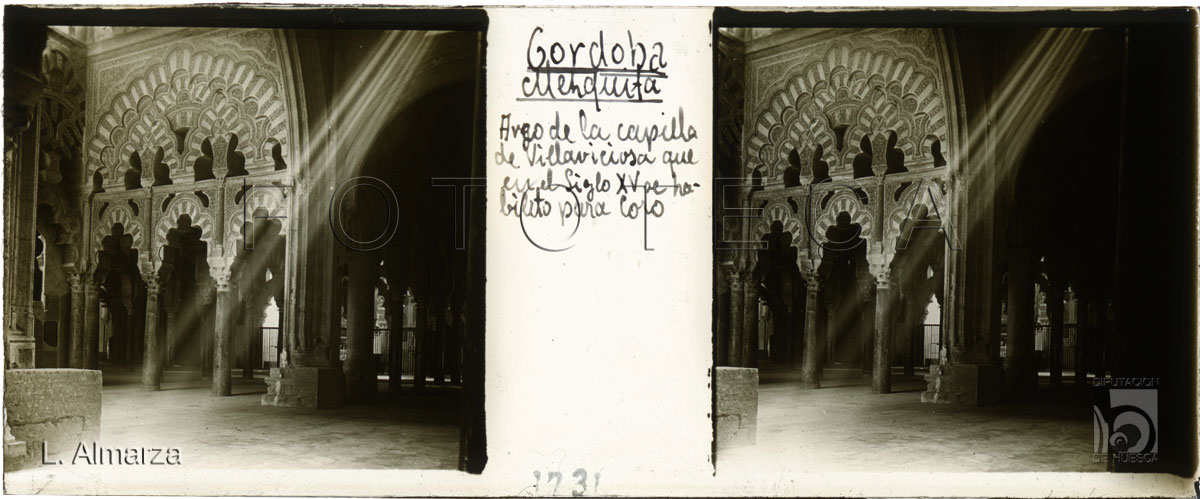 Cordoba
Mezquita
Arco de la capilla
de Villaviciosa que
en el Siglo XV se ha-
bilito para Coro
FOTOTECA
L. Almarza
DIPUTACION
DE HUESCA
1731